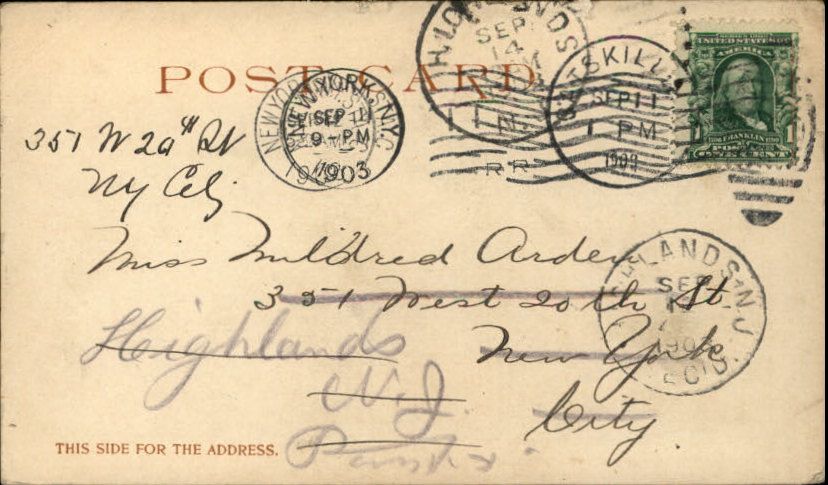 POST CARD
HIGHLANDS
SEP
14
M
CATSKILL
SEP 11
1 PM
1903
SERIES 1902
UNITED STATES OF
AMERICA
FRANKLIN
1 POSTAGE 1
ONE CENT
NEW YORK, N.Y.
SEP 11
9-PM
1903
351 W 20th St
NY City
Miss Mildred Arden
351 West 20th St.
New York
City
Highlands
N.J.
HIGHLANDS, N.J.
SEP
190
REC'D.
THIS SIDE FOR THE ADDRESS.